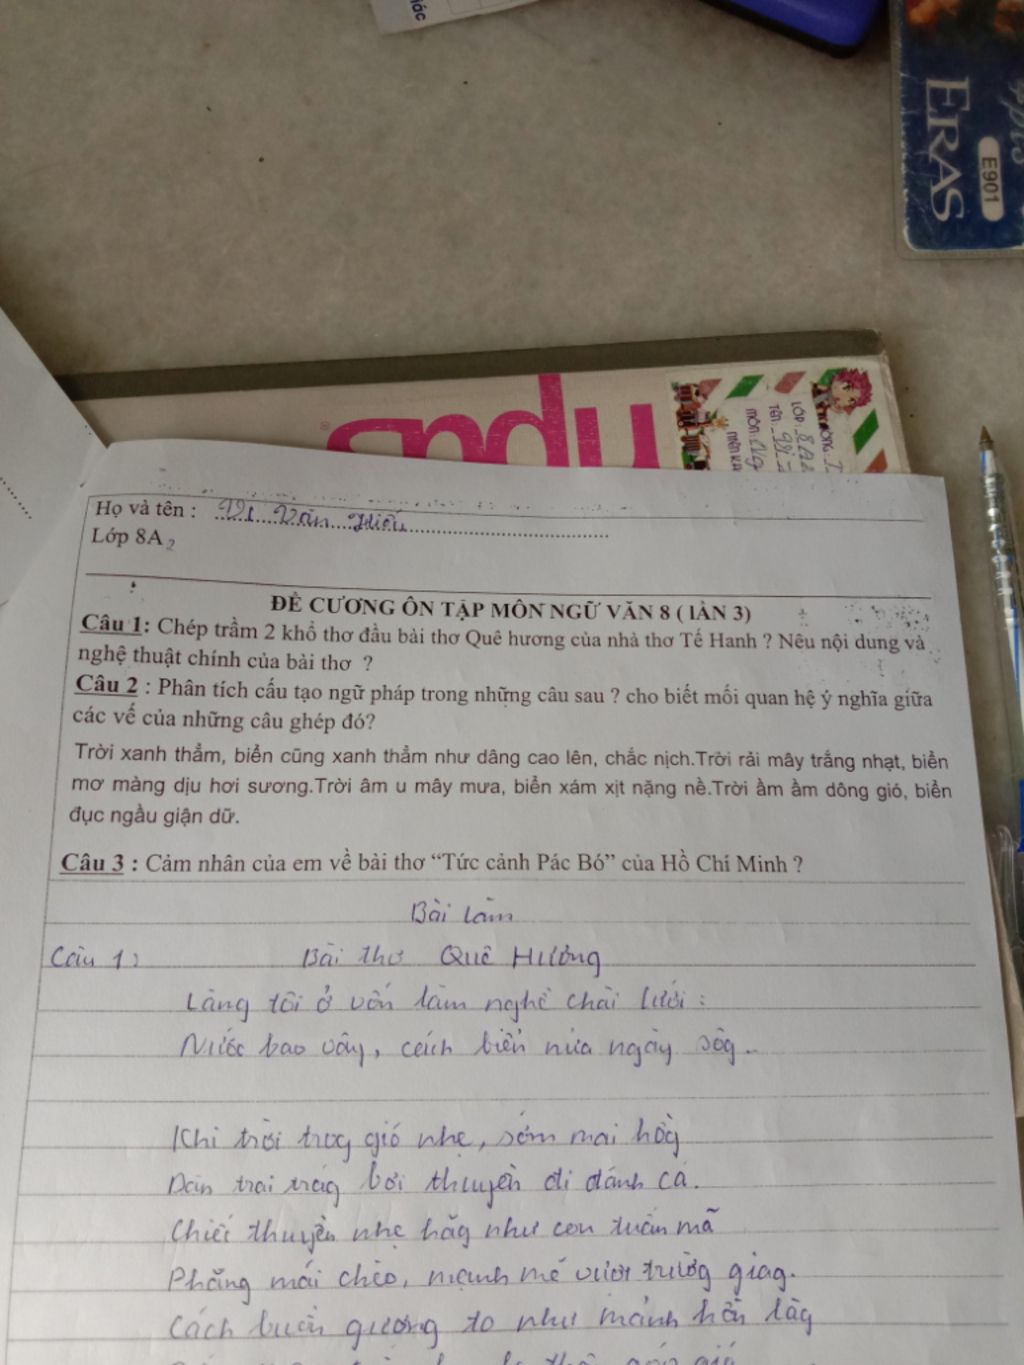 ERAS
E901
Họ và tên : Vi Văn Hiếu
Lớp 8A2
ĐỀ CƯƠNG ÔN TẬP MÔN NGỮ VĂN 8 ( lẦN 3)
Câu 1: Chép trầm 2 khổ thơ đầu bài thơ Quê hương của nhà thơ Tế Hanh ? Nêu nội dung và
nghệ thuật chính của bài thơ ?
Câu 2 : Phân tích cấu tạo ngữ pháp trong những câu sau ? cho biết mối quan hệ ý nghĩa giữa
các vế của những câu ghép đó?
Trời xanh thẳm, biển cũng xanh thẳm như dâng cao lên, chắc nịch.Trời rải mây trắng nhạt, biển
mơ màng dịu hơi sương.Trời âm u mây mưa, biển xám xịt nặng nề.Trời ầm ầm dông gió, biển
đục ngầu giận dữ.
Câu 3 : Cảm nhân của em về bài thơ “Tức cảnh Pác Bó” của Hồ Chí Minh ?
Bài làm
Câu 1: Bài thơ Quê Hương
Làng tôi ở vốn làm nghề chài lưới :
Nước bao vây, cách biển nửa ngày sôg.
Khi trời trog gió nhẹ, sớm mai hồg
Dân trai trág bơi thuyền đi đánh cá.
Chiếc thuyền nhẹ hăg như con tuấn mã
Phăng mái chèo, mạnh mẽ vượt trườg giag.
Cách buồn giương to như mảnh hồn làg